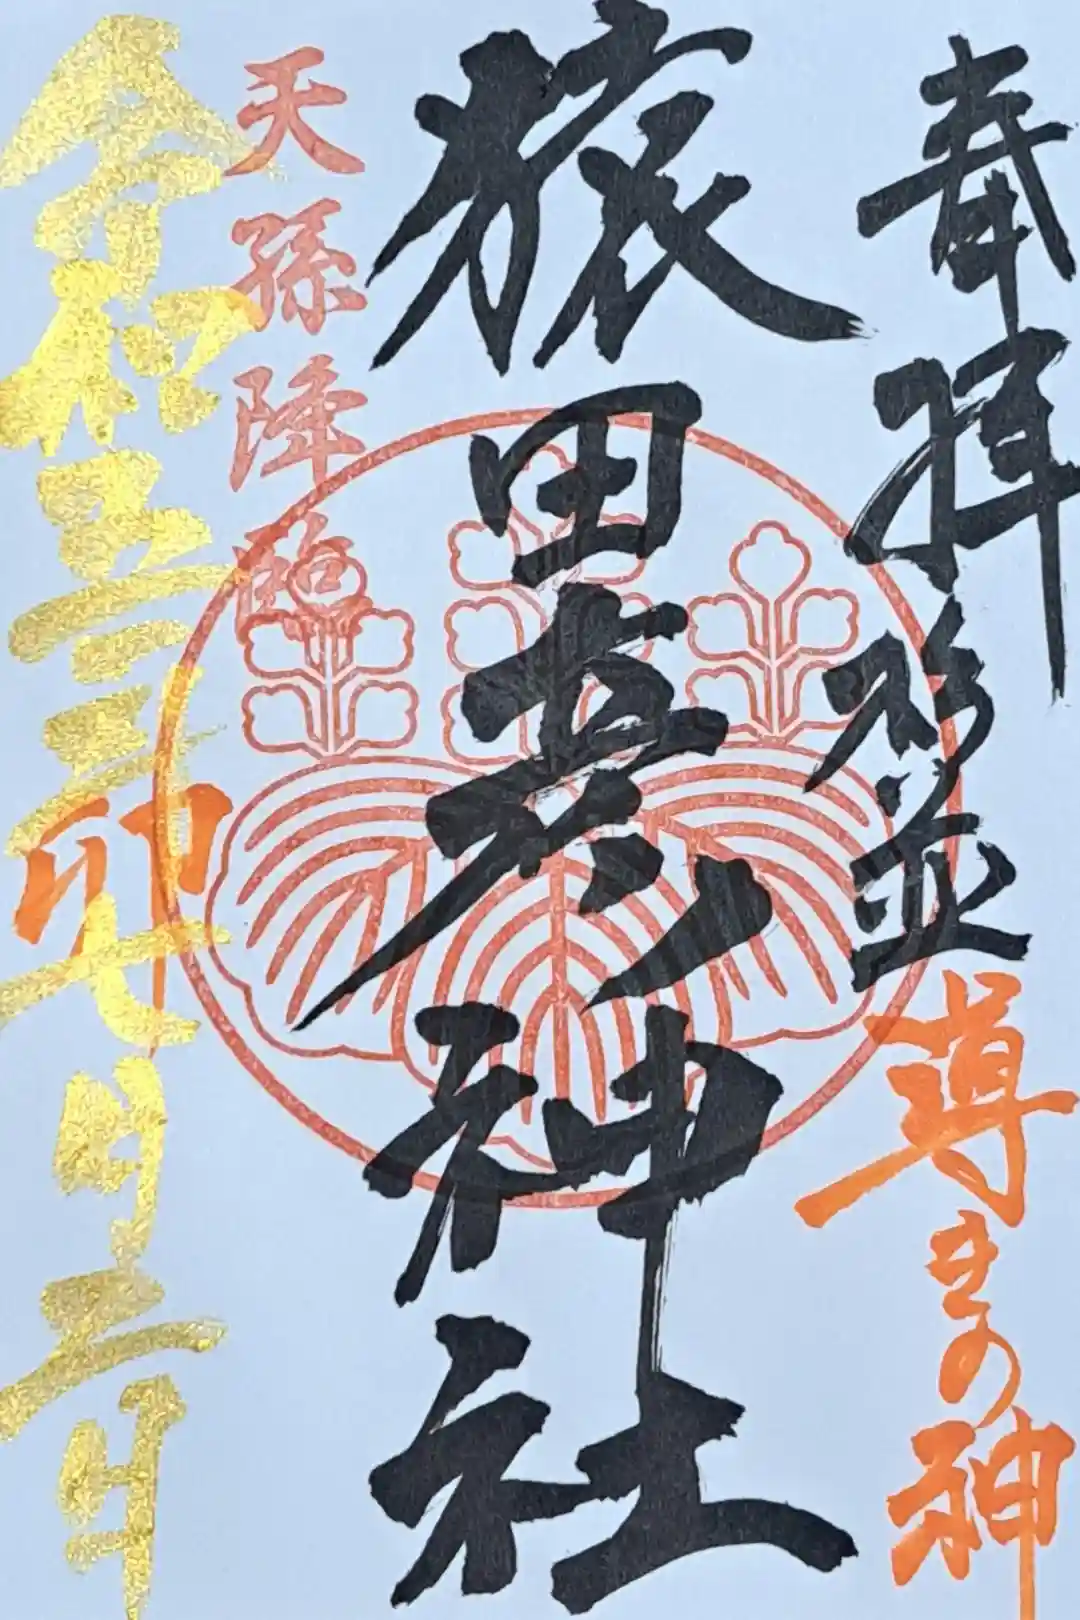 奉拝
杉並
導きの神
猿田彦神社
天孫降臨
令和五年七月二日
卯